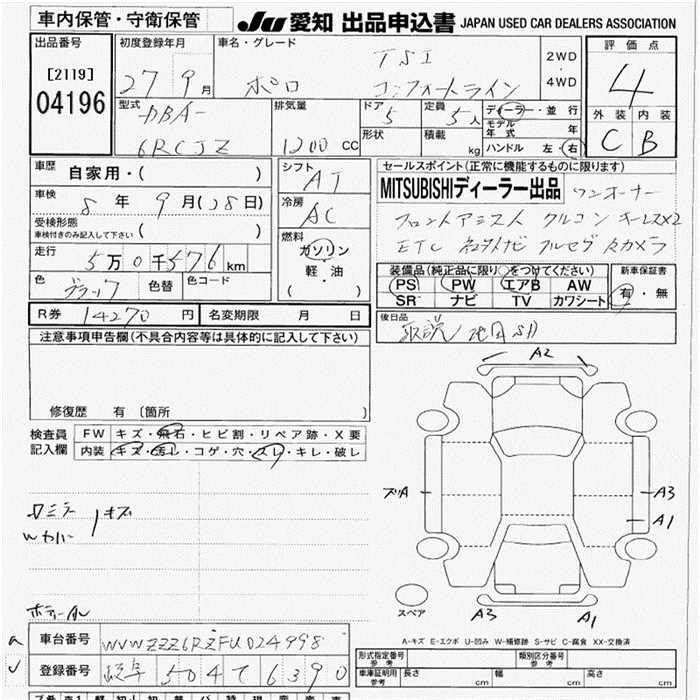 車内保管・守衛保管 JU 愛知 出品申込書 JAPAN USED CAR DEALERS ASSOCIATION
出品番号 初度登録年月 車名・グレード 評価点
[2119] 27 9月 ポロ TSI 2WD
04196 コンフォートライン 4WD 4
型式 排気量 ドア 定員 ディーラー・並行 外装 内装
DBA- 5 5人 モデル年式 年 C B
6RCJZ 1200 CC 形状 積載 kg ハンドル 左・右
車歴 自家用・( ) シフト AT セールスポイント(正常に機能するものに限ります)
車検 8年 9月(18日) 冷房 AC MITSUBISHIディーラー出品 ワンオーナー
受検形態 ( ) フロントアシスト クルコン キーレス×2
車検付きのみ記入して下さい 燃料 ETC 純正ナビ フルセグ カメラ
走行 5万0千576km ガソリン 装備品(純正品に限り○をつけてください) 新車保証書
軽・油 PS PW エアB AW 有・無
色 ブラック 色替 色コード ( ) SR ナビ TV カワシート
R券 14270円 名変期限 月 日 後日品
注意事項申告欄(不具合内容等は具体的に記入して下さい) 取説/地図SD
A2
修復歴 有〔箇所 〕
検査員 FW キズ・飛石・ヒビ割・リペア跡・X要
記入欄 内装 キズ・汚レ・コゲ・穴・スレ・キレ・破レ
ズリA A3
ロミラー A1
Wカバー キズ
スペア A3 A1
A-キズ E-エクボ U-凹み W-補修跡 S-サビ C-腐食 XX-交換済
車台番号 WVWZZZ6RZFU024998
登録番号 岐阜 504 て 6390
形式指定番号 参考 類別区分番号 参考
車庫証明用 参考 長さ cm 幅 cm 高さ cm